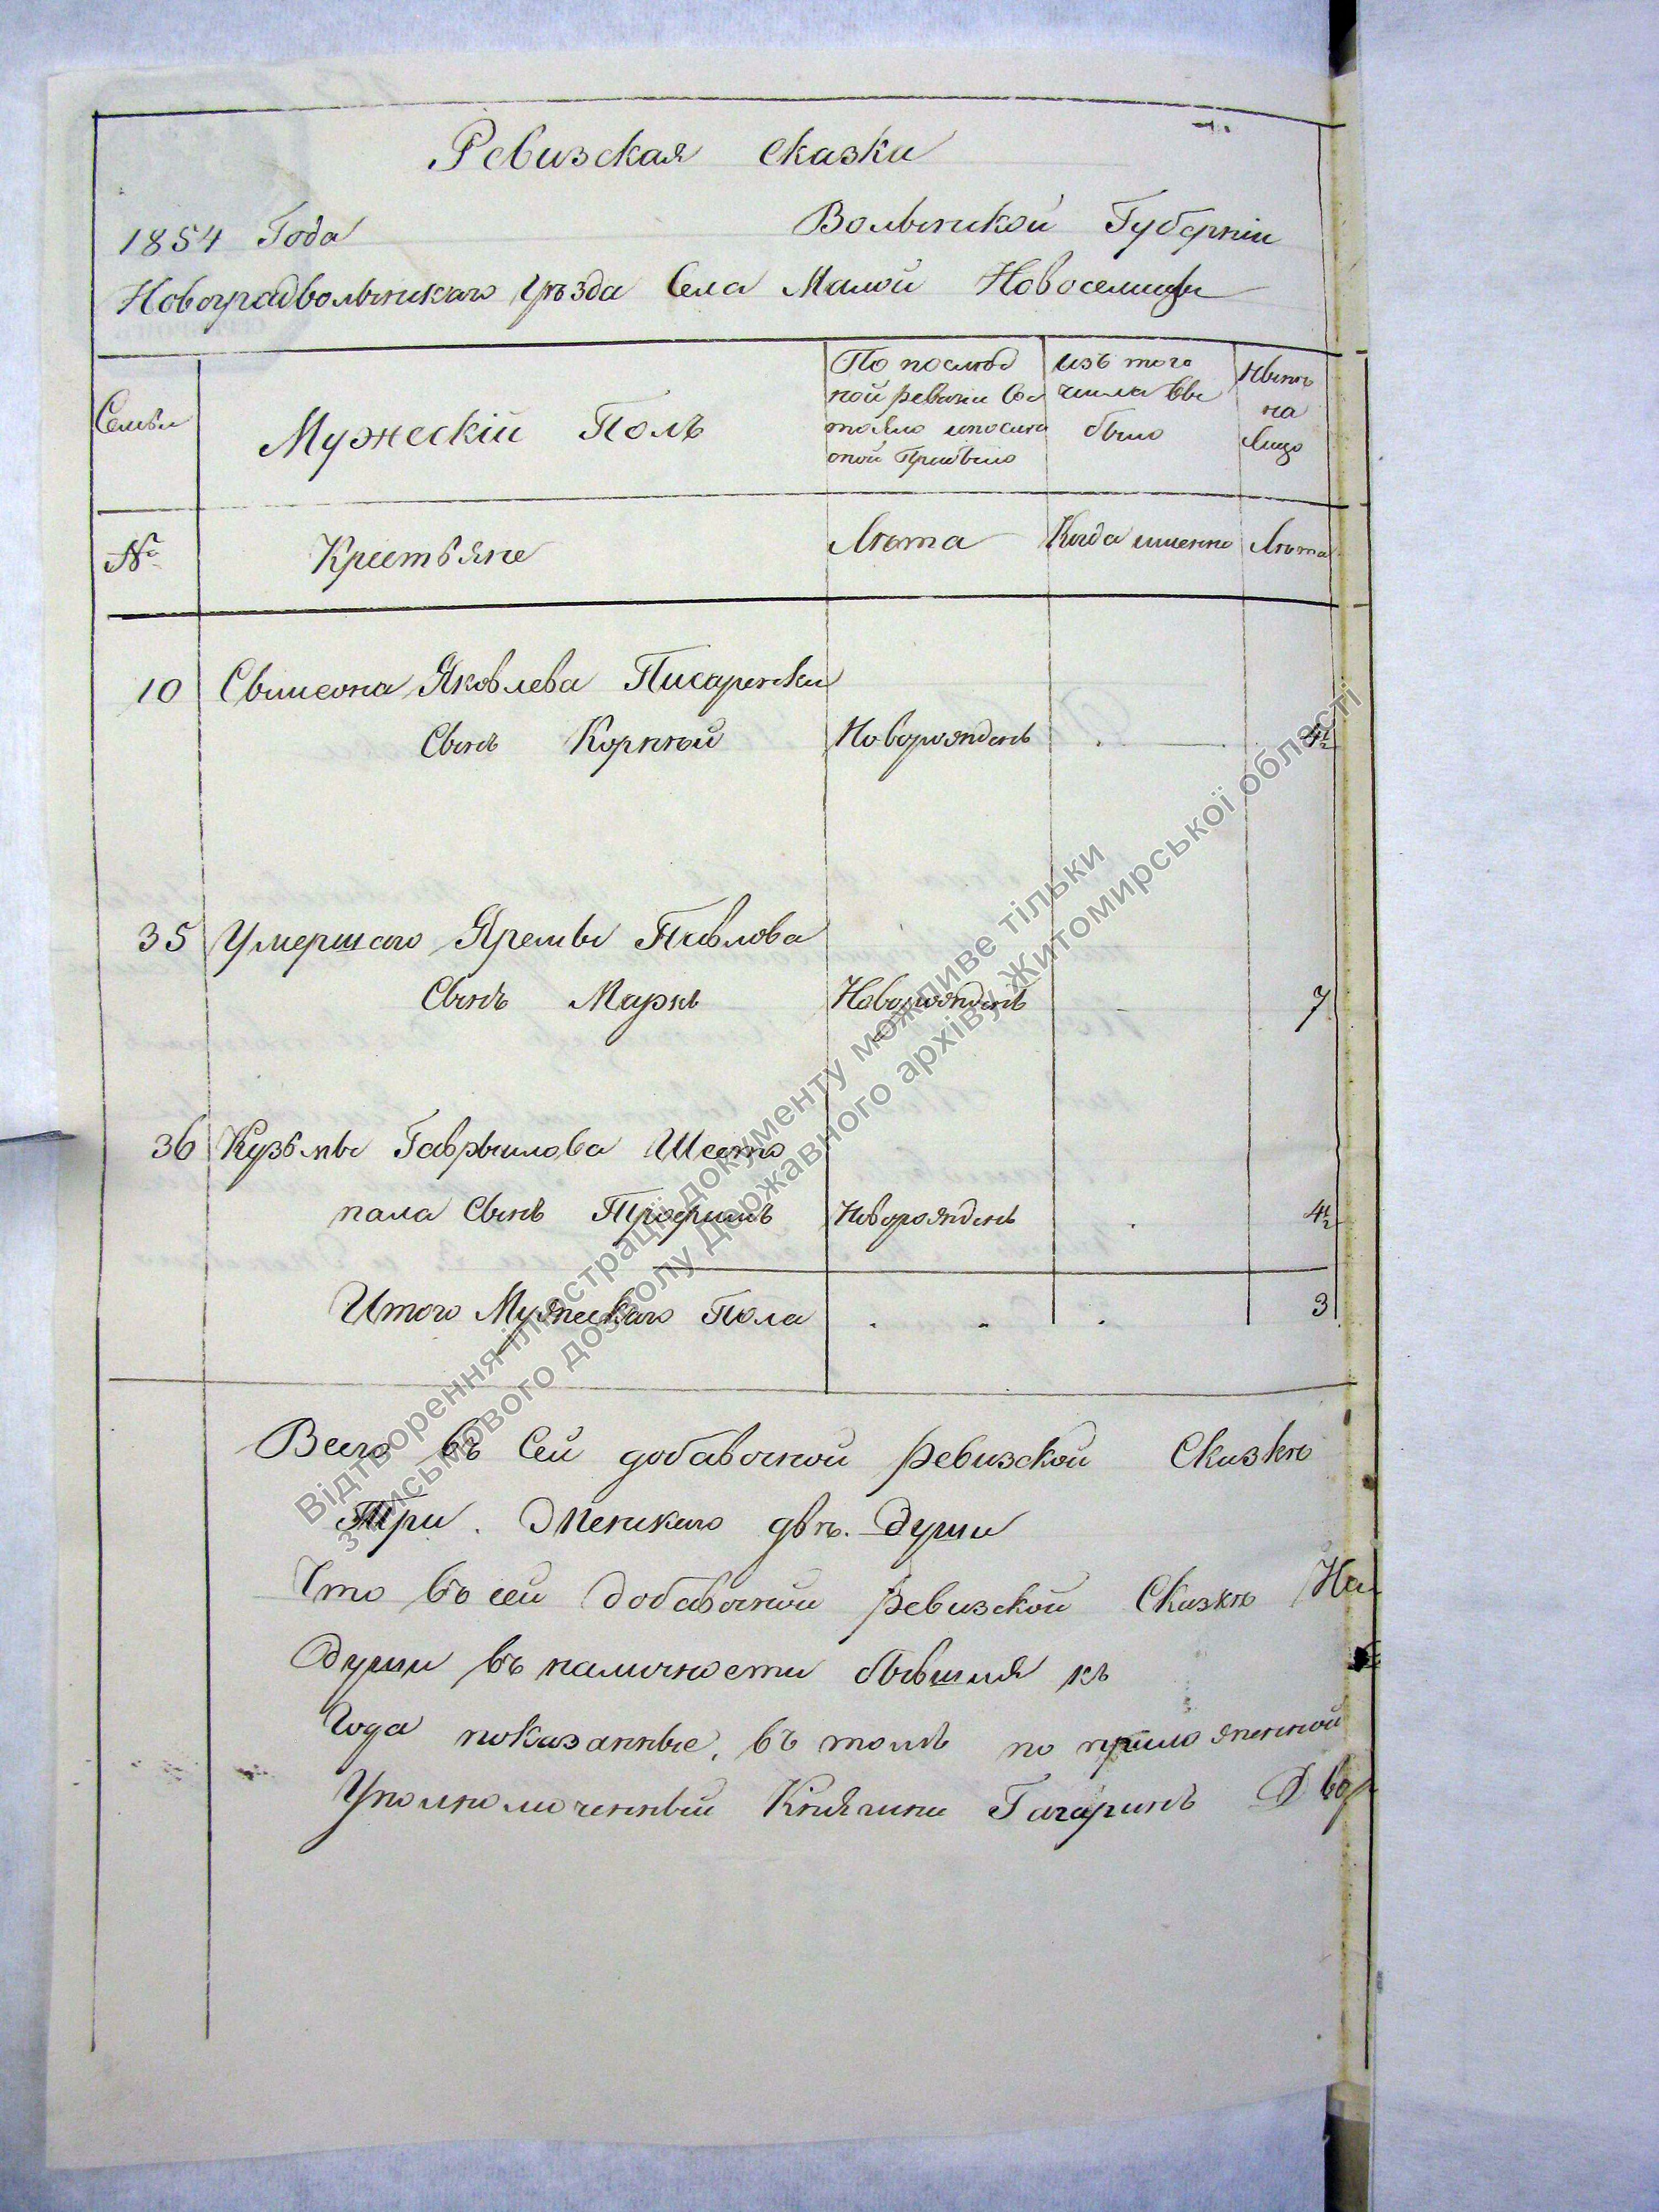 Ревизская сказка
1854 Года Волынской Губерніи
Новоградволынскаго Уѣзда Села Малой Новоселицы
Семьи
Мужескій Полъ
По послѣд
ной ревизіи Сос
тояло и после
оной Прибыло
изъ того
числа вы
было
Нынѣ
на
Лицо
№ Крестьяне Лѣта Когда именно Лѣта
10 Сымеона Яковлева Писаренка
Сынъ Корнѣй Новорожденъ 4½
35 Умершаго Яремы Павлова
Сынъ Марко Новорожденъ 7
36 Кузьмы Гаврылова Шесто
пала Сынъ Трофимъ Новорожденъ 4½
Итого Мужескаго Пола 3
Всего въ Сей добавочной ревизской Сказкѣ
Три. Женскаго двѣ. Души
Что въ сей добавочной ревизской Сказкѣ На
души въ наличности бывшія къ
Года показанные, въ томъ по приложенной
Уполномоченный Княгини Гагаринъ Двор
Відтворення ілюстрації документу можливе тільки
з письмового дозволу Державного архіву Житомирської області